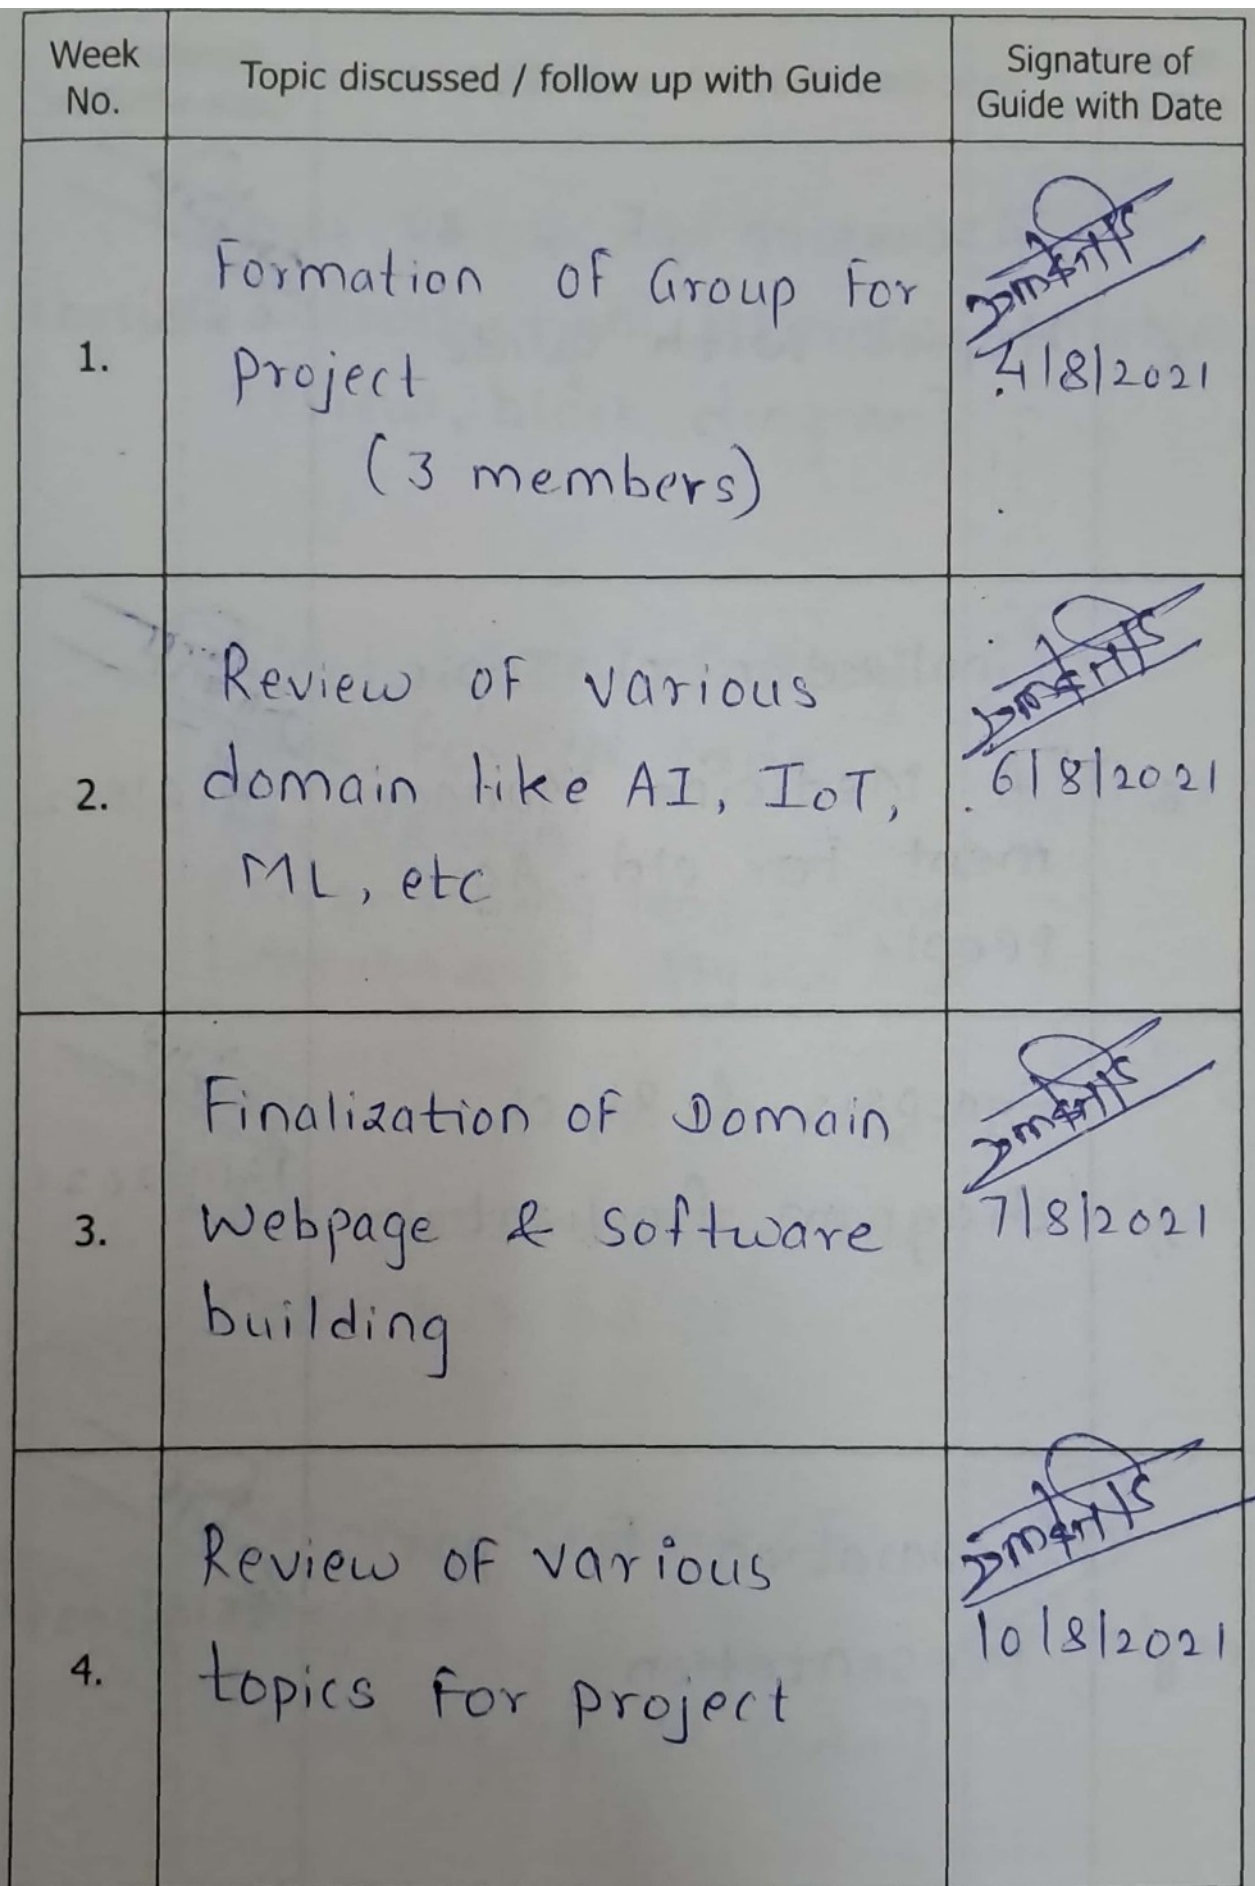 Week
No.
Topic discussed / follow up with Guide
Signature of
Guide with Date
1.
Formation of Group For
Project
(3 members)
4/8/2021
2.
Review of various
domain like AI, IoT,
ML, etc
6/8/2021
3.
Finalization of Domain
Webpage & software
building
7/8/2021
4.
Review of various
topics For project
10/8/2021